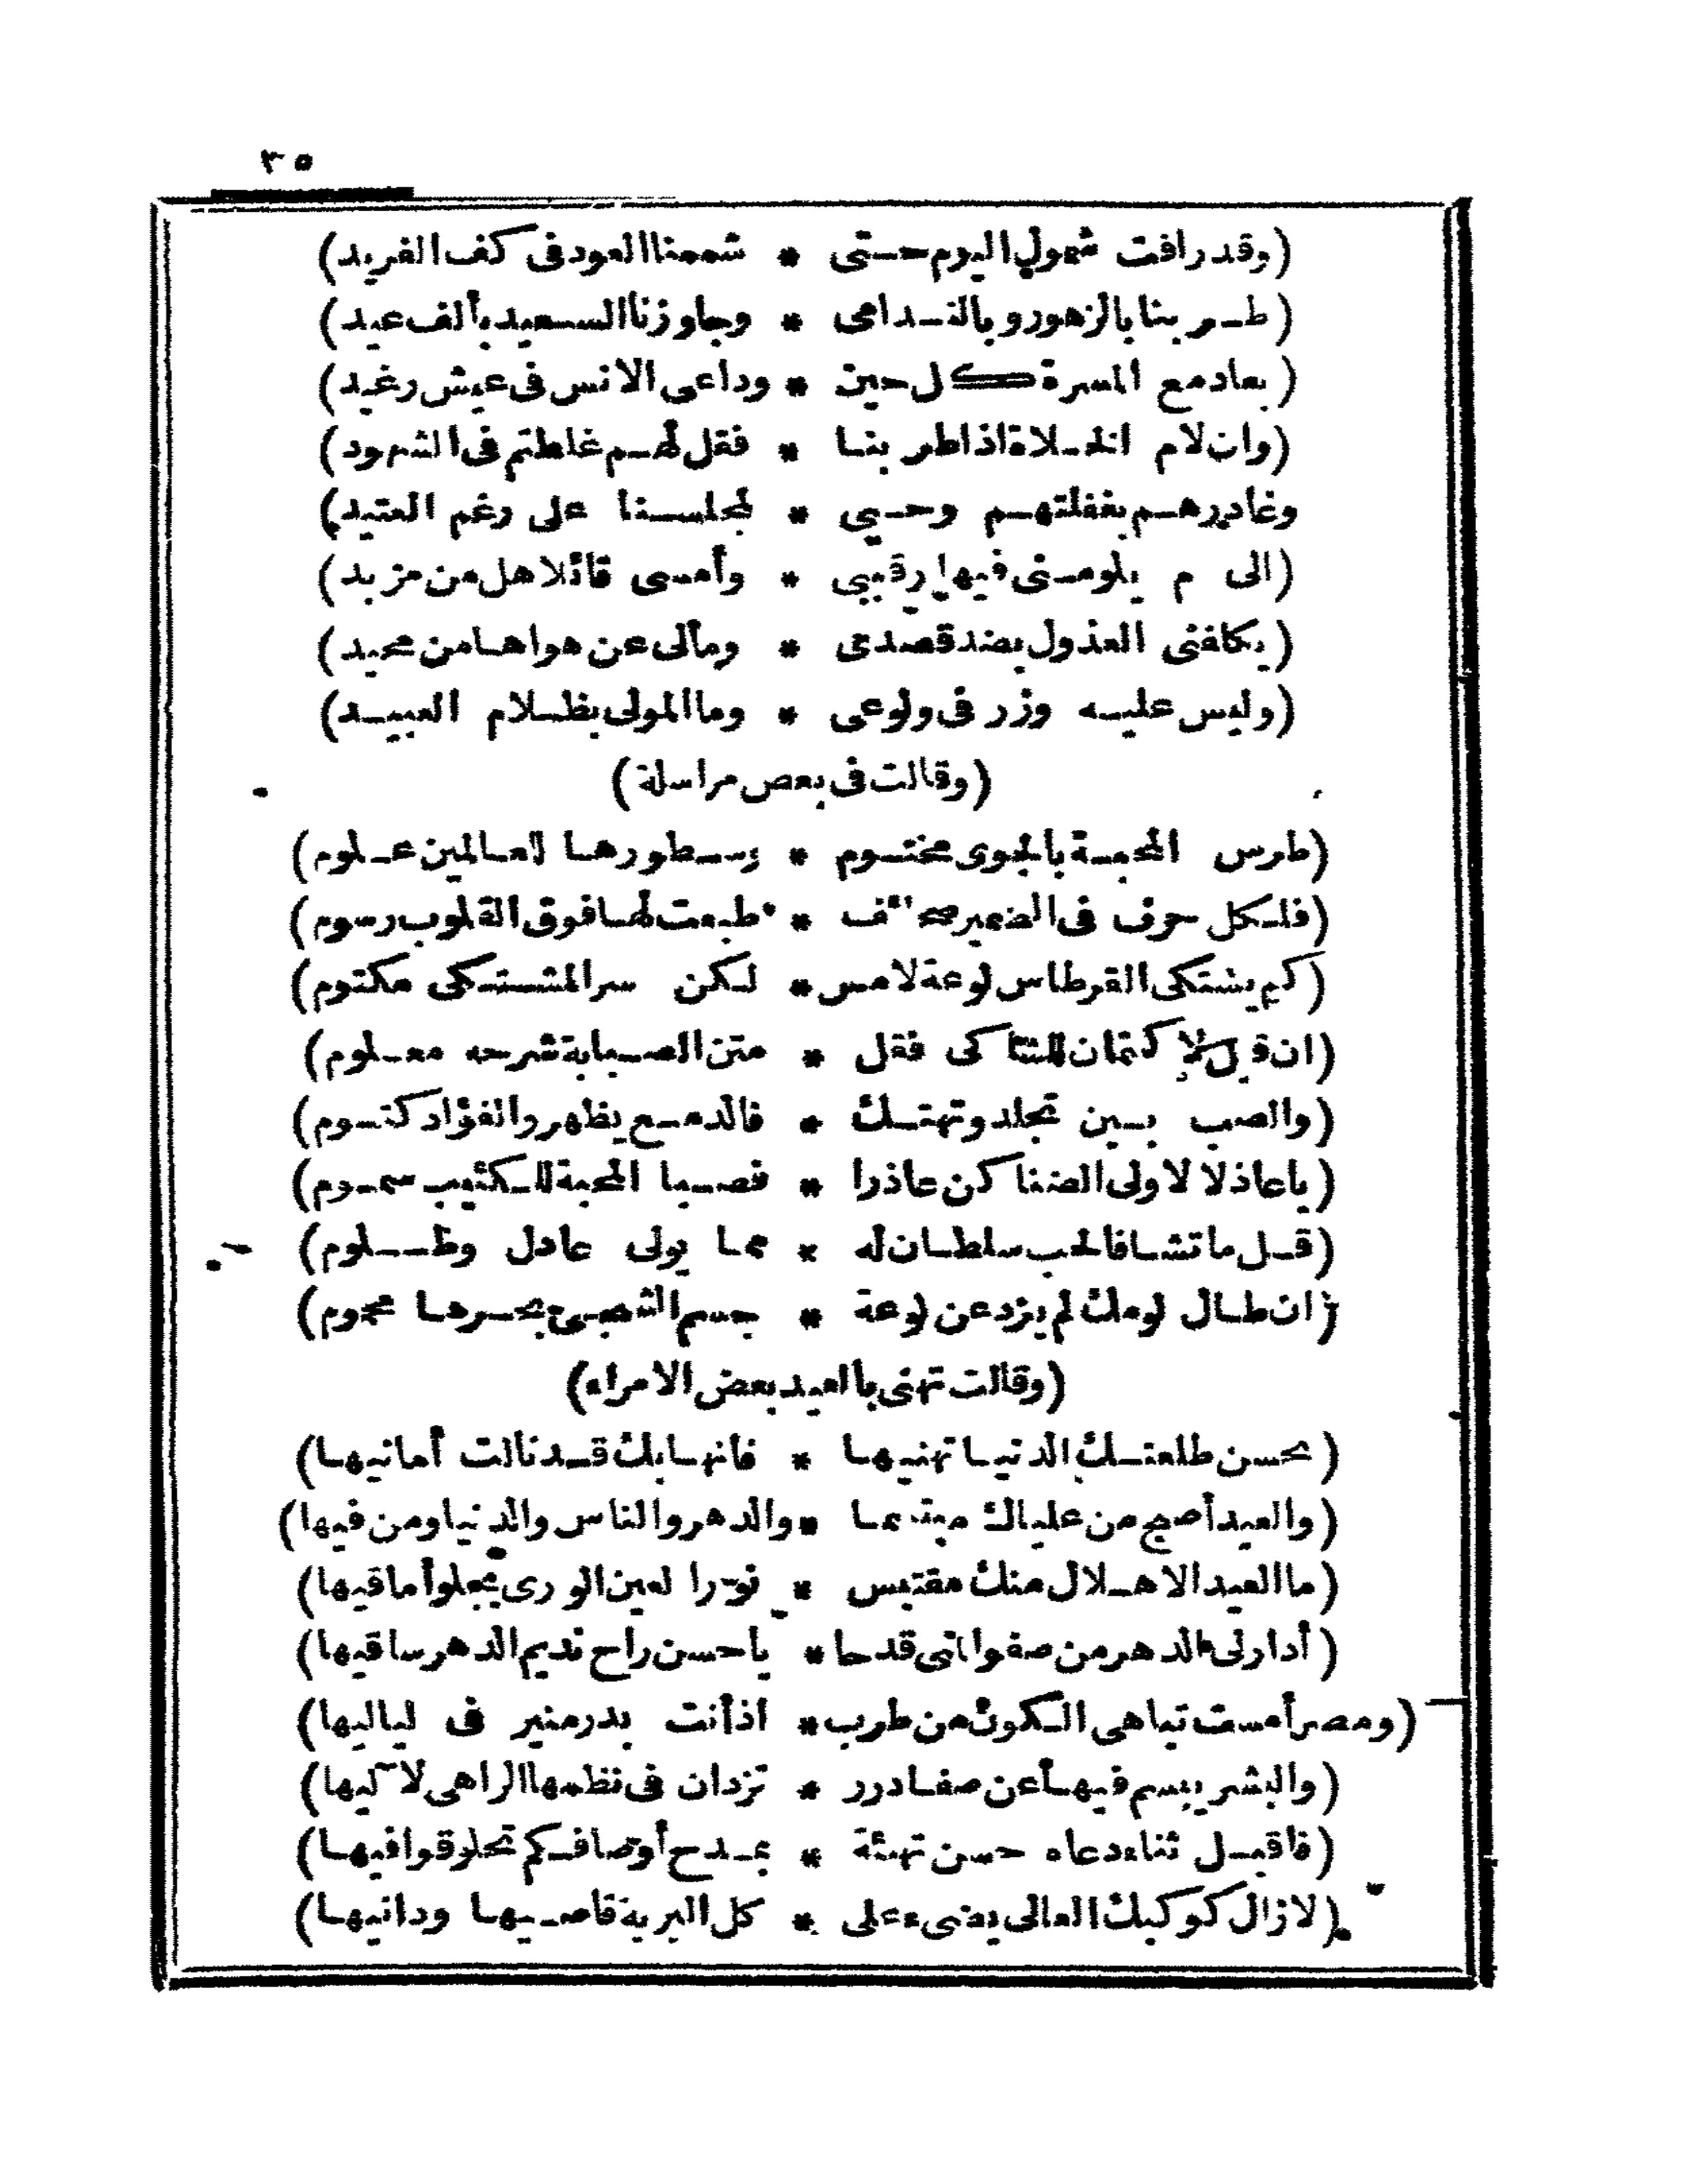 ٣٥
(وقد راقت شمول اليوم حتى * شممنا العود فى كف الفريد)
(طربنا بالزهور وبالندامى * وجاوزنا السعيد بألف عيد)
(بعاد مع المسرة كل حين * وداعى الانس فى عيش رغيد)
(وان لام الخلاة اذا طربنا * فقل لهم غلطتم فى الشهود)
وغادرهم بغفلتهم وحى * لمجلسنا على رغم العتيد)
(الى م يلومنى فيها رقيبى * وأمسى قائلا هل من مزيد)
(يكافنى العذول بضد قصدى * ومالى عن هواها من محيد)
(وليس عليه وزر فى ولوعى * وما المولى بظلام العبيد)
(وقالت فى بعض مراسلة)
(طرس المحبة بالجوى مختوم * وسطورها للعالمين علوم)
(فلكل حرف فى الضمير صحائف * طبعت لها فوق القلوب رسوم)
(كم يشتكى القرطاس لوعة لامس * لكن سر المشتكى مكتوم)
(ان قيل لا كتمان للشاكى فقل * متن الصبابة شرحه معلوم)
(والصب بين تجلد وتهتك * فالدمع يظهر والفؤاد كتوم)
(يا عاذلا لاولى الضنا كن عاذرا * فصبا المحبة للكئيب سموم)
(قل ما تشا فالحب سلطان له * مما يولى عادل وظلوم)
(ان طال لومك لم يزد عن لوعة * جسم الشجى بحرها محموم)
(وقالت تهنى بالعيد بعض الامراء)
(بحسن طلعتك الدنيا تهنيها * فانها بك قد نالت أمانيها)
(والعيد أصبح من علياك مبتسما * والدهر والناس والدنيا ومن فيها)
(ما العيد الاهلال منك مقتبس * نورا لعين الورى يجلو أماقيها)
(أدار لى الدهر من صفو الهنا قدحا * يا حسن راح نديم الدهر ساقيها)
(ومصر أمست تباهى الكون من طرب * اذ أنت بدر منير فى لياليها)
(والبشر يبسم فيها عن صفا درر * تزدان فى نظمها الزاهى لآليها)
(فاقبل ثناء دعاه حسن تهنئة * بمدح أوصافكم تحلو قوافيها)
(لا زال كوكبك العالى يضىء على * كل البرية قاصيها ودانيها)